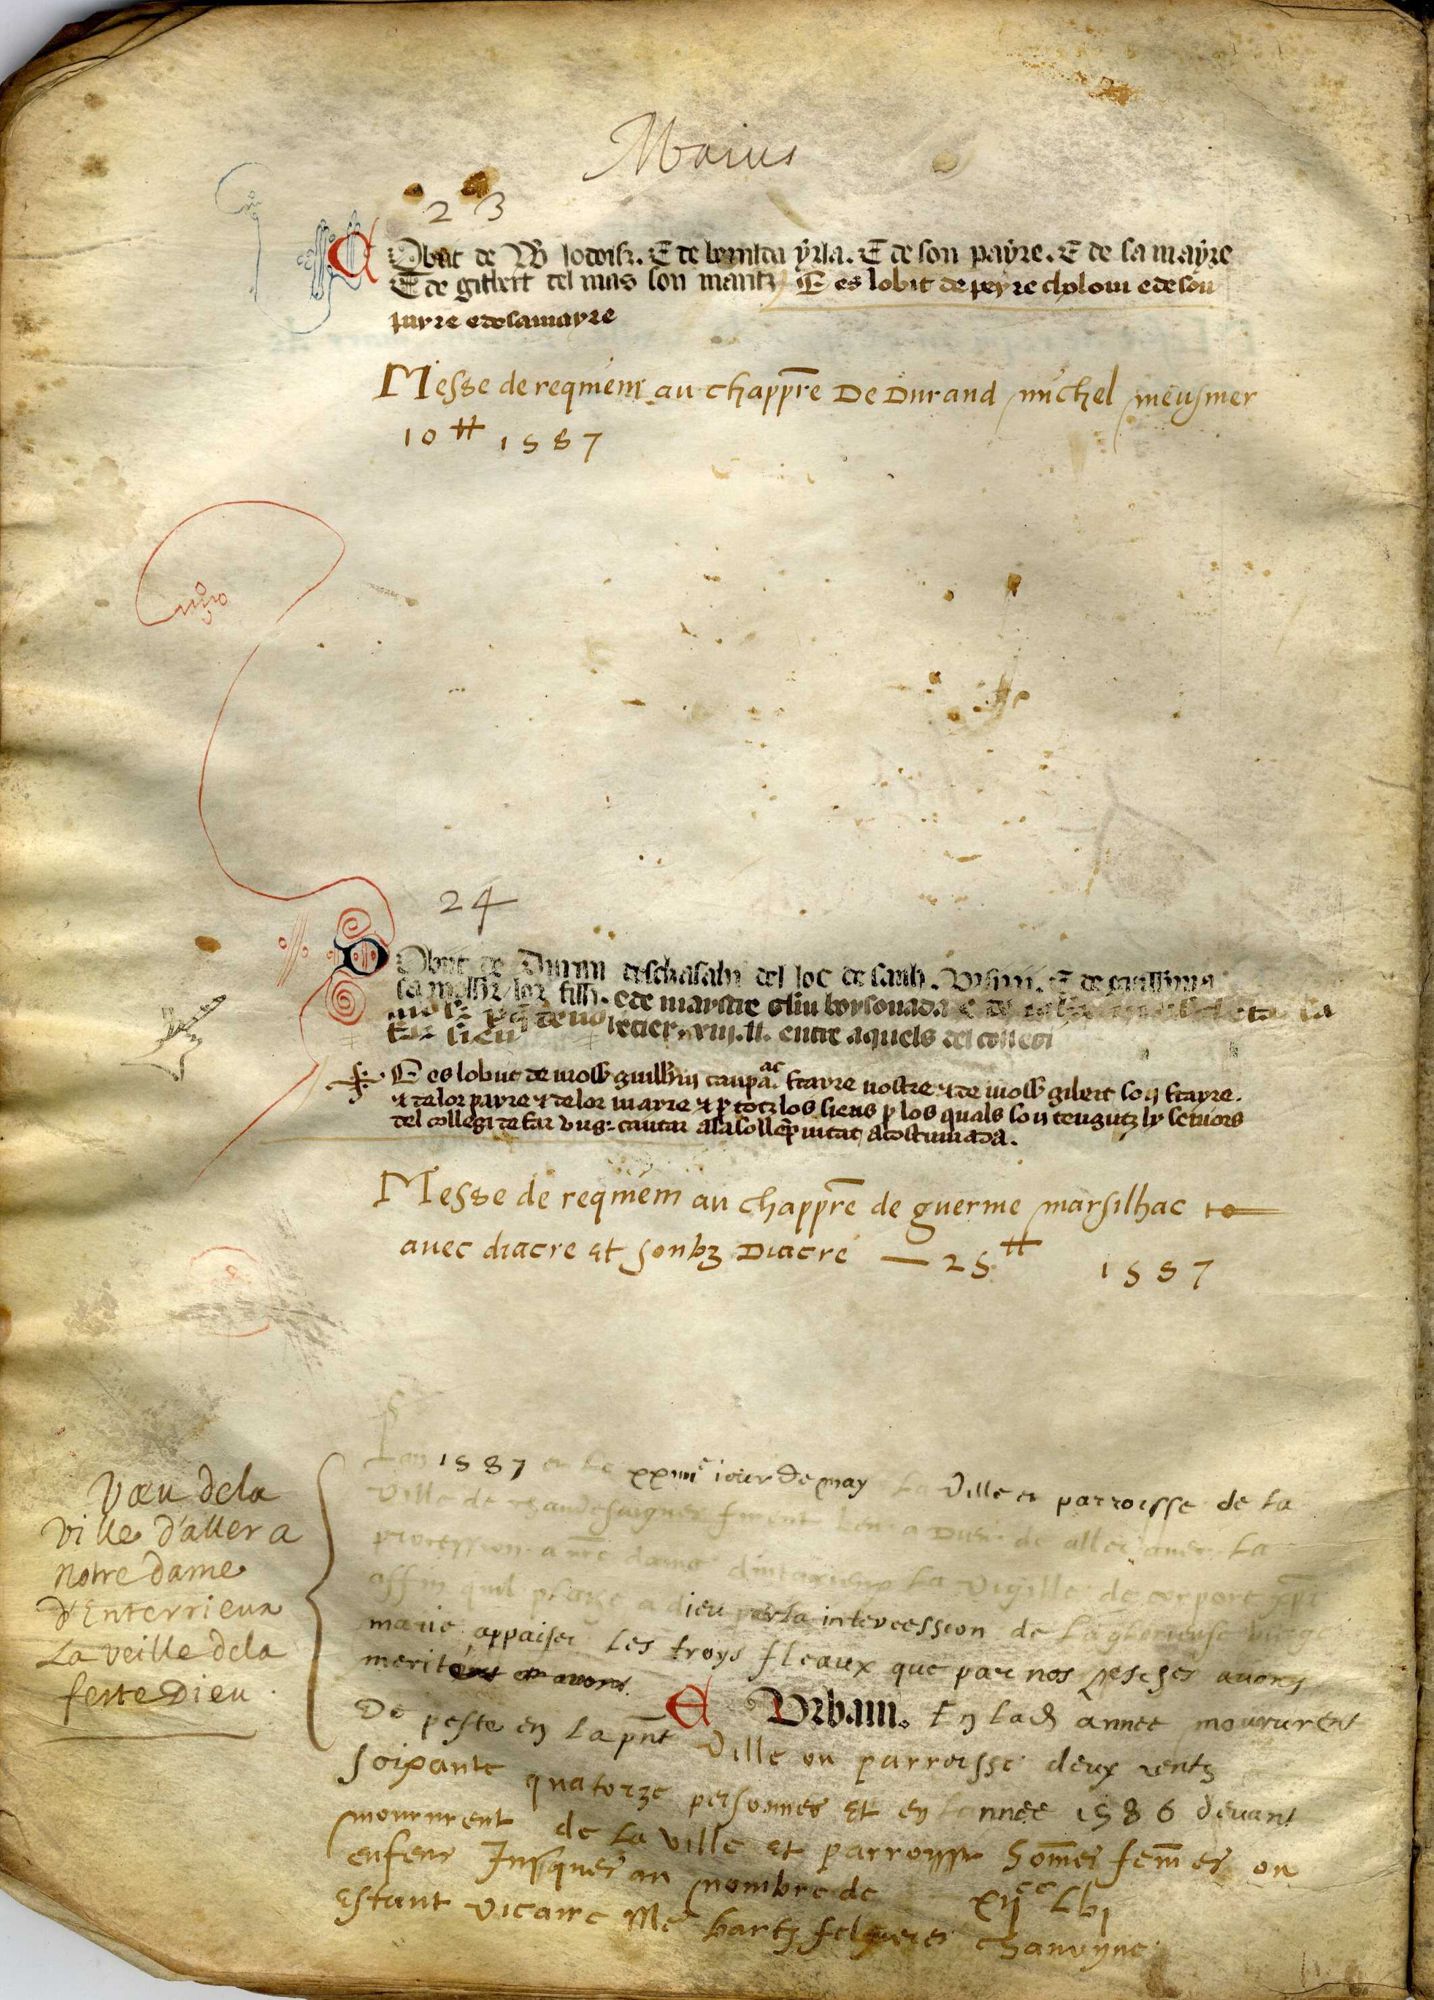 Maius
23
C Obiit de W E de E de son payre. E de sa mayre
E de gilbert del mas son marit E es lobit de peyre e de son
payre e de sa mayre
Messe de reqmem au chappre De Durand michel meusnier
10 ₶ 1587
24
D Obiit de Duran del loc de E de guillma
sa molher lor filh. e de maystre
entre aquels del collegi
E es lobiit de moss guillm frayre nostre e de moss gibert son frayre.
e de lor payre e de lor mayre e p totz los siens p los quals son tengutz ly senhors
del collegi de far cantar a la sollepnitat acostumada.
Messe de reqmem au chappre de guerme marsilhac
avec diacre Et soubz Diacre — 25 ₶ 1587
Vœu dela
ville d'aller a
notre dame
d'Enterrieux
La veille dela
feste Dieu
Lan 1587 et le xxiiii e iour de may La Ville et parroisse de La
Ville de chaudesaigues firent veu a Dieu de aller avec La
procession a nre dame dintarieux La Vigille de corpore xpi
affin quil plaize a dieu par la intercession de La glorieuse vierge
marie appaiser Les troys fleaux que par nos pesches avons
merite
A Urbani. En lad annee moururent
De peste en La pnt Ville ou parroisse deux centz
soixante quatorze personnes Et en lannee 1586 devant
moururent de La ville Et parroisse homes femes ou
enfens Jusques au nombre de xii cc lvi
Estant vicaire Me bartz felgueres chanoyne